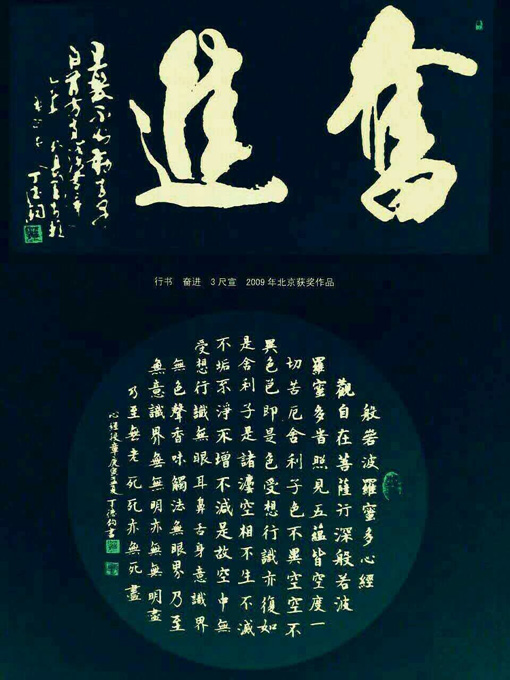 奮進
行书 奋进 3尺宣 2009年北京获奖作品
般若波羅蜜多心經
觀自在菩薩行深般若波
羅蜜多旹照見五蘊皆空度一
切苦厄舍利子色不異空空不
異色色即是色受想行識亦復如
是舍利子是諸灋空相不生不滅
不垢不淨不增不減是故空中無
受想行識無眼耳鼻舌身意識界
無色聲香味觸法無眼界乃至
無意識界無無明亦無無明盡
乃至無老死死亦無死盡